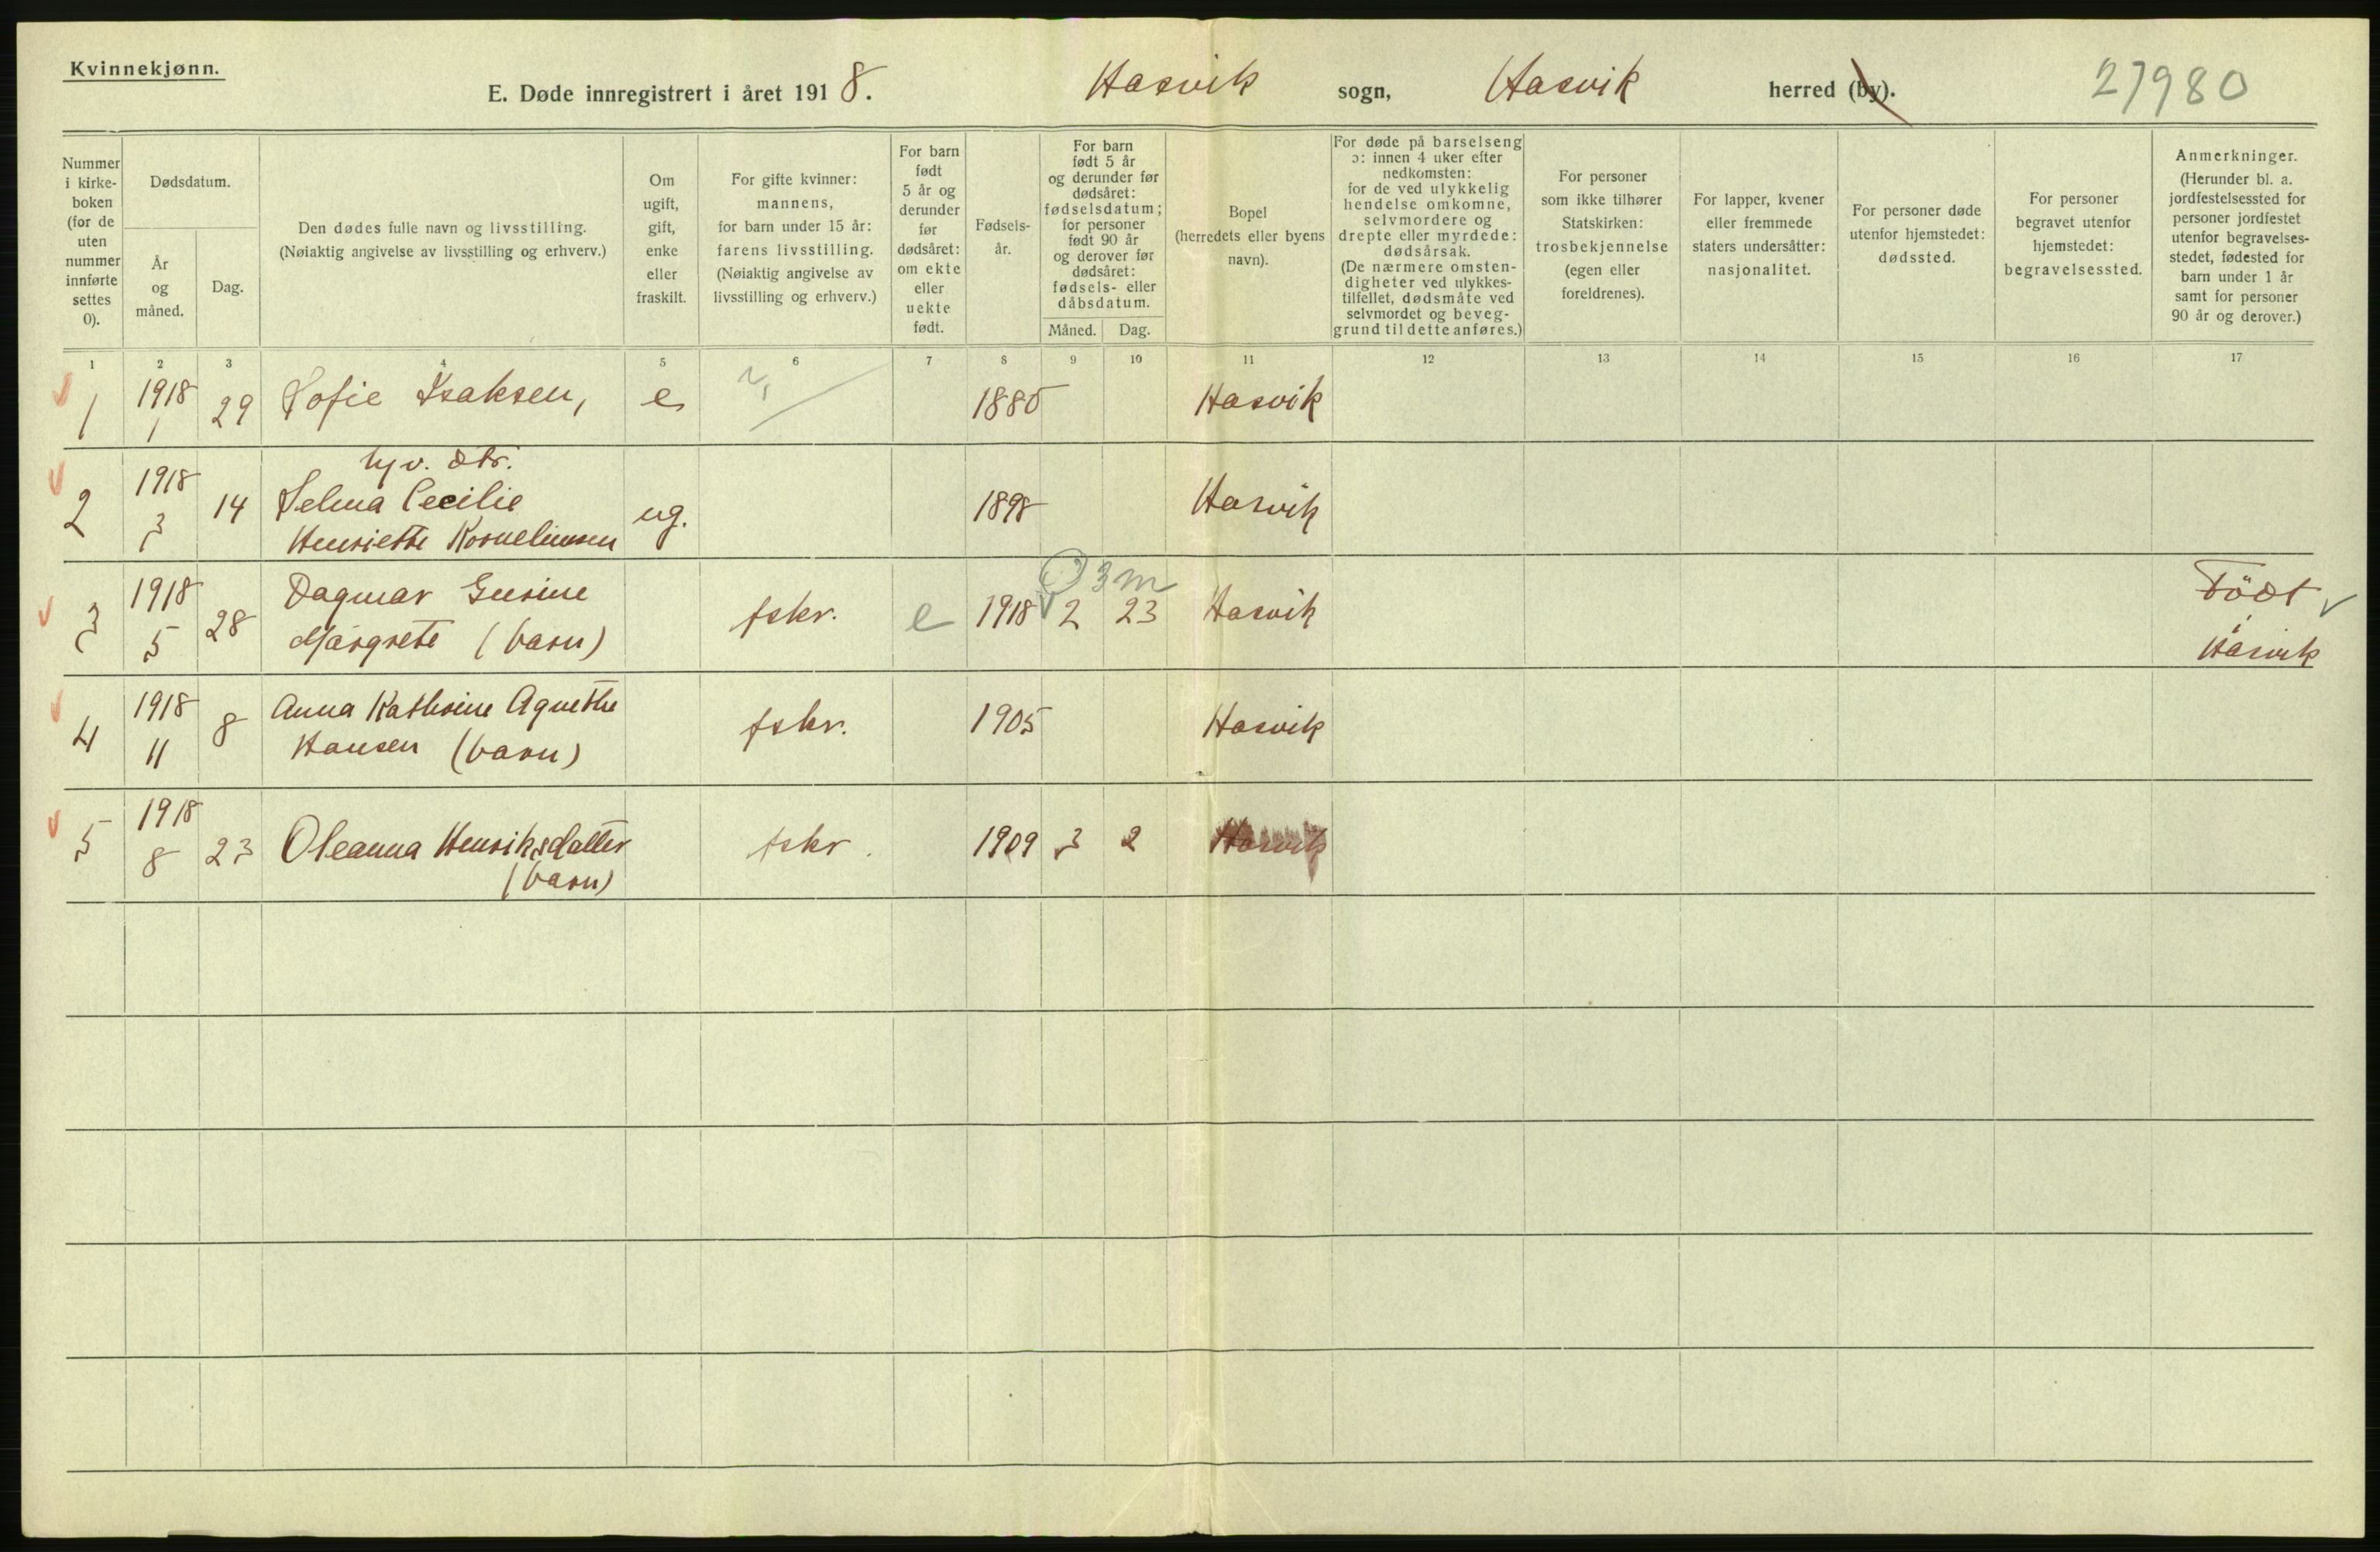 Kvinnekjønn.
E. Døde innregistrert i året 1918. Hasvik sogn, Hasvik herred (by). 27980
Nummer i kirke- boken (for de uten nummer innførte settes 0).
Dødsdatum.
År og måned.
Dag.
Den dødes fulle navn og livsstilling.
(Nøiaktig angivelse av livsstilling og erhverv.)
Om ugift, gift, enke eller fraskilt.
For gifte kvinner: mannens, for barn under 15 år: farens livsstilling. (Nøiaktig angivelse av livsstilling og erhverv.)
For barn født 5 år og derunder før dødsåret: om ekte eller uekte født.
Fødsels- år.
For barn født 5 år og derunder før dødsåret: fødselsdatum; for personer født 90 år og derover før dødsåret: fødsels- eller dåbsdatum.
Måned. Dag.
Bopel (herredets eller byens navn).
For døde på barselseng ɔ: innen 4 uker efter nedkomsten: for de ved ulykkelig hendelse omkomne, selvmordere og drepte eller myrdede: dødsårsak. (De nærmere omsten- digheter ved ulykkes- tilfellet, dødsmåte ved selvmordet og beveg- grund til dette anføres.)
For personer som ikke tilhører Statskirken: trosbekjennelse (egen eller foreldrenes).
For lapper, kvener eller fremmede staters undersåtter: nasjonalitet.
For personer døde utenfor hjemstedet: dødssted.
For personer begravet utenfor hjemstedet: begravelsessted.
Anmerkninger. (Herunder bl. a. jordfestelsessted for personer jordfestet utenfor begravelses- stedet, fødested for barn under 1 år samt for personer 90 år og derover.)
1 2 3 4 5 6 7 8 9 10 11 12 13 14 15 16 17
1 1918 1 29 Sofie Isaksen, e 1880 Hasvik
hjv. dtr.
2 1918 3 14 Selma Cecilie
Henriette Korneliussen ug. 1898 Hasvik
3 m
3 1918 5 28 Dagmar Gusine
Margrete (barn) fskr. e 1918 2 23 Hasvik Födt Hasvik
4 1918 11 8 Anna Kathrine Agnethe
Hansen (barn) fskr. 1905 Hasvik
5 1918 8 23 Oleanna Henriksdatter
(barn) fskr. 1909 3 2 Hasvik